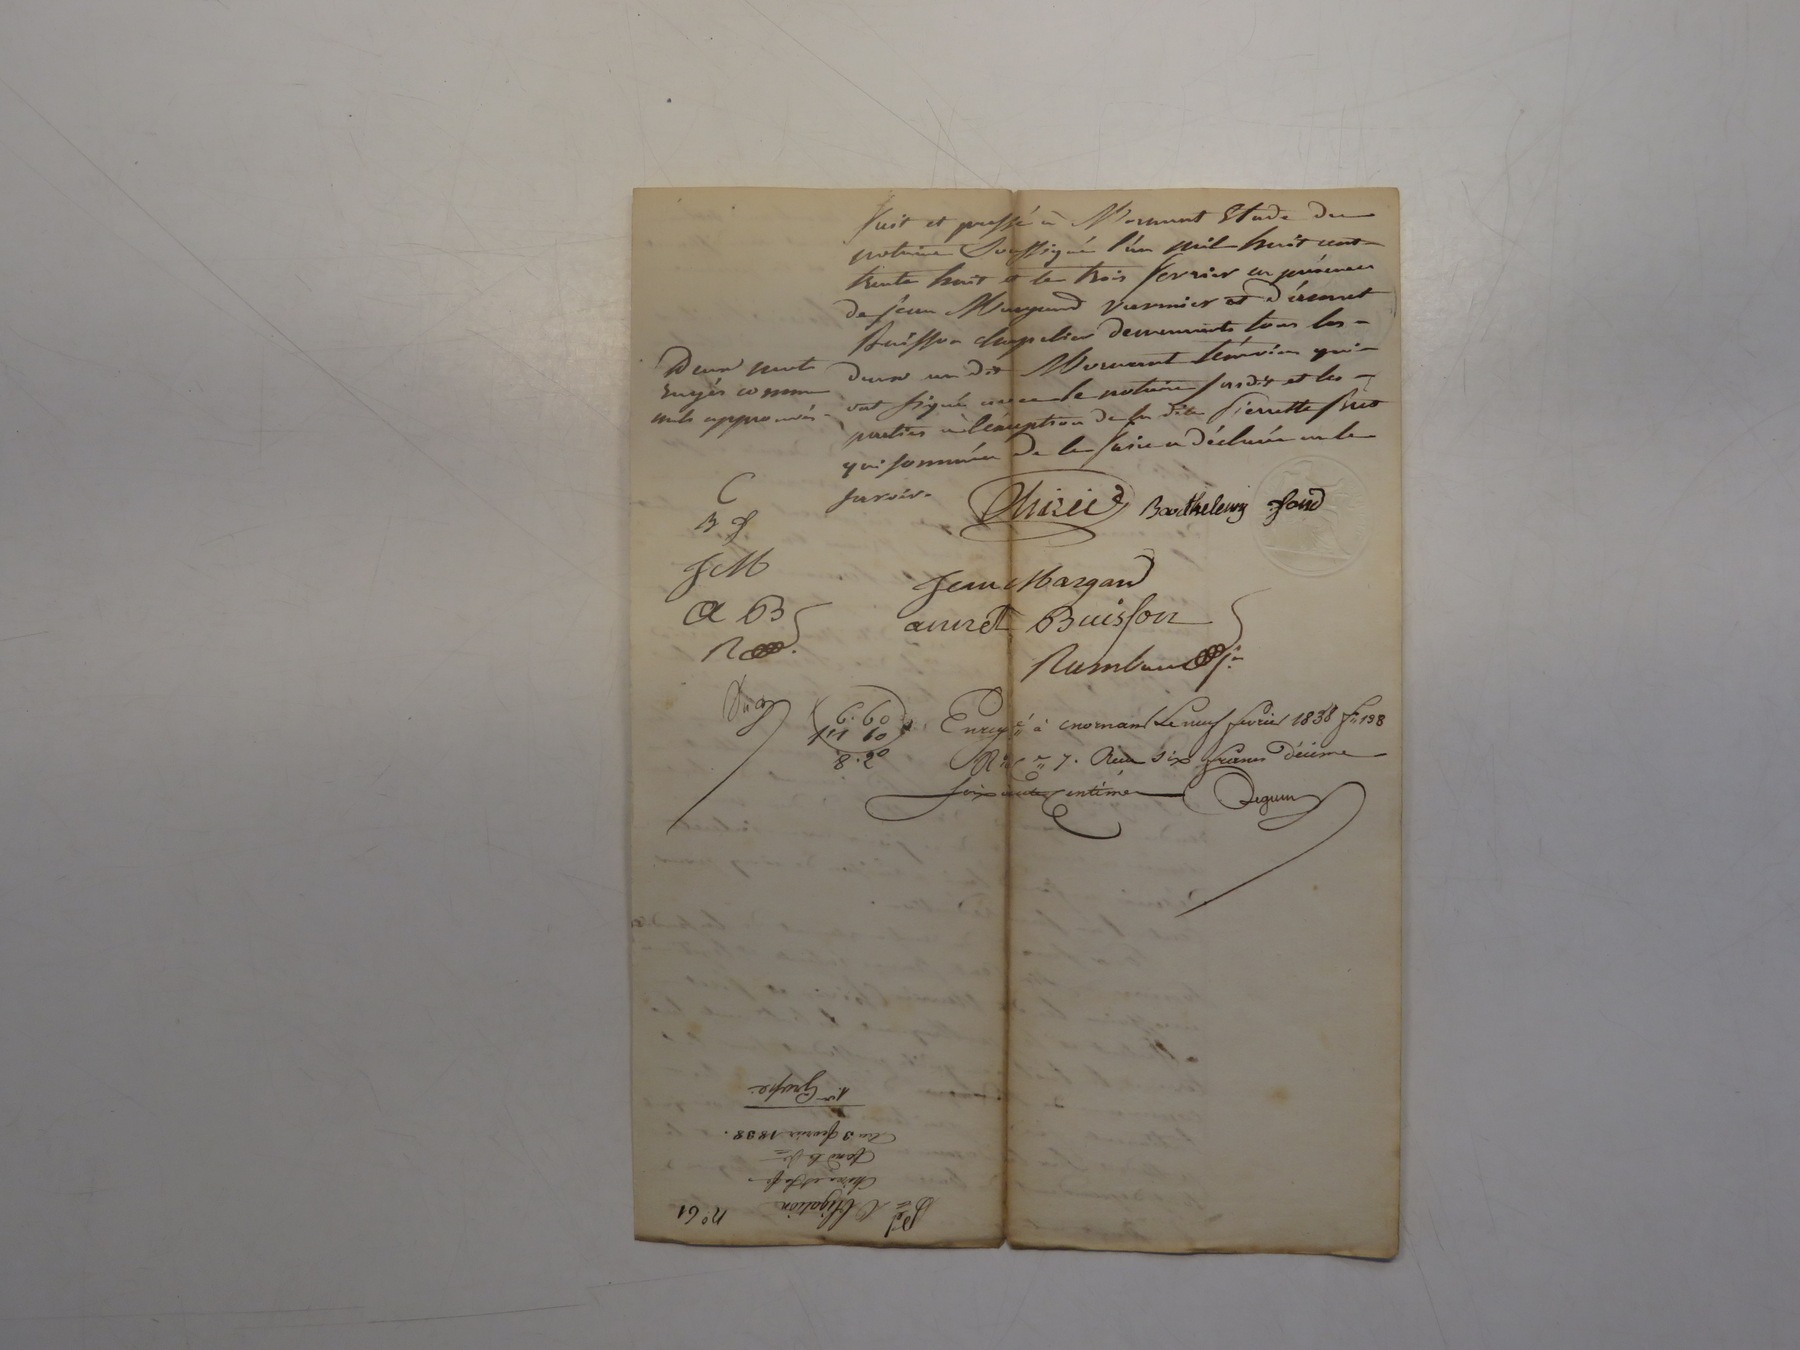 fait et passé à Mornant Etude du
notaire Soussigné l'an mil huit cent
trente huit et le trois fevrier en présence
de jean Margand vannier et d'ennet
Buisson chapelier demeurants tous les
deux au dit Mornant témoins qui
ont signé avec le notaire susdit et les
parties à l'éxeption de la dite pierrette
qui sommée de le faire a déclarée ne le
savoir.
Deux mots
rayés comme
nuls approuvés
C
B f
J M
a B
R
Chirée
Barthelemy fond
Jean Margand
Buisson
Rambaud jn
6.60
1.60
8.20
Enregé à mornant Le neuf fevrier 1838 fo 198
Ro Co 7. Reçu six francs décime
soixante Centimes
n° 61
obligation
Chirée et
fond
du 3 fevrier 1838.
1re Grosse